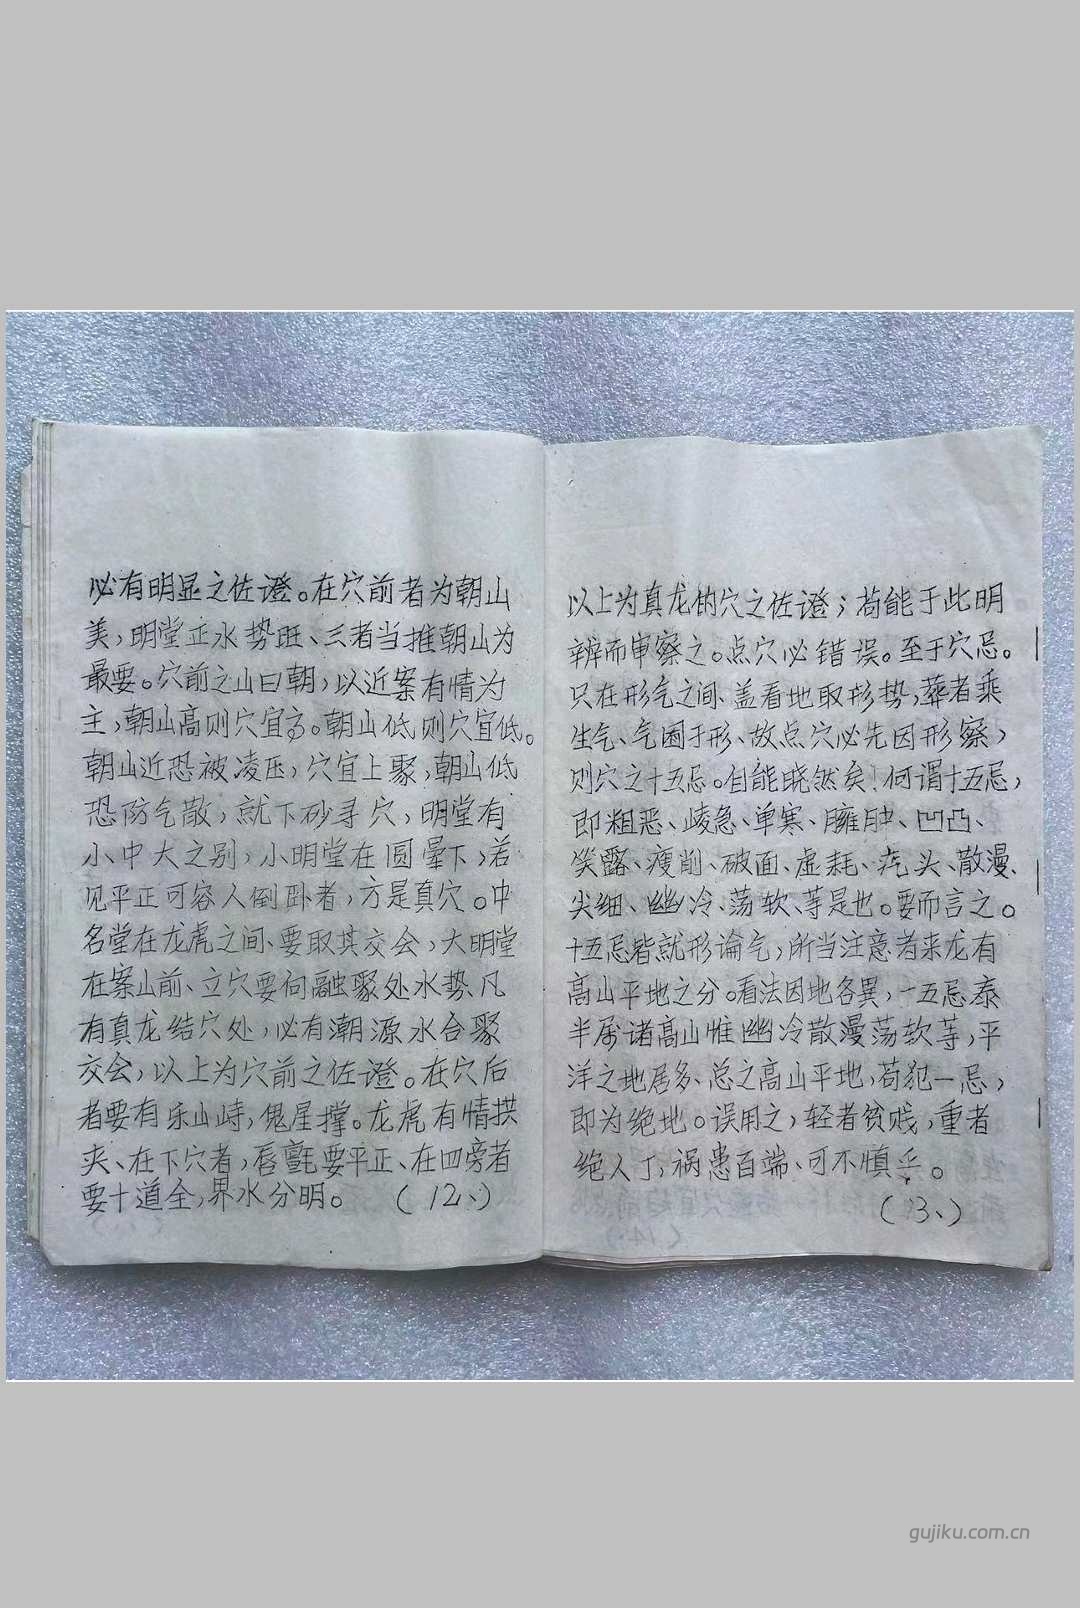 必有明显之佐證。在穴前者为朝山
美，明堂正水势旺、三者当推朝山为
最要。穴前之山曰朝，以近案有情为
主，朝山高则穴宜高。朝山低则穴宜低。
朝山近恐被凌压，穴宜上聚，朝山低
恐防气散，就下砂寻穴，明堂有
小中大之别，小明堂在圆晕下，若
见平正可容人倒卧者，方是真穴。中
名堂在龙虎之间、要取其交会，大明堂
在案山前、立穴要向融聚处水势、凡
有真龙结穴处，必有潮源水合聚
交会，以上为穴前之佐證。在穴后
者要有乐山峙，鬼星撑。龙虎有情拱
夹、在下穴者，唇氈要平正、在四旁者
要十道全，界水分明。 (12、)
以上为真龙的穴之佐證；苟能于此明
辨而审察之。点穴必错误。至于穴忌。
只在形气之间、盖看地取形势，葬者乘
生气、气囿于形、故点穴必先因形察，
则穴之十五忌。自能晓然矣！何谓十五忌，
即粗恶、峻急、单寒、臃肿、凹凸、
突露、瘦削、破面、虚耗、疙头、散漫、
尖细、幽冷、荡软、等是也。要而言之。
十五忌皆就形论气，所当注意者来龙有
高山平地之分。看法因地各異，十五忌泰
半属诸高山惟幽冷散漫荡软等，平
洋之地居多、总之高山平地，苟犯一忌，
即为绝地。误用之，轻者贫贱，重者
绝人丁，祸患百端、可不慎乎。
(13、)
gujiku.com.cn